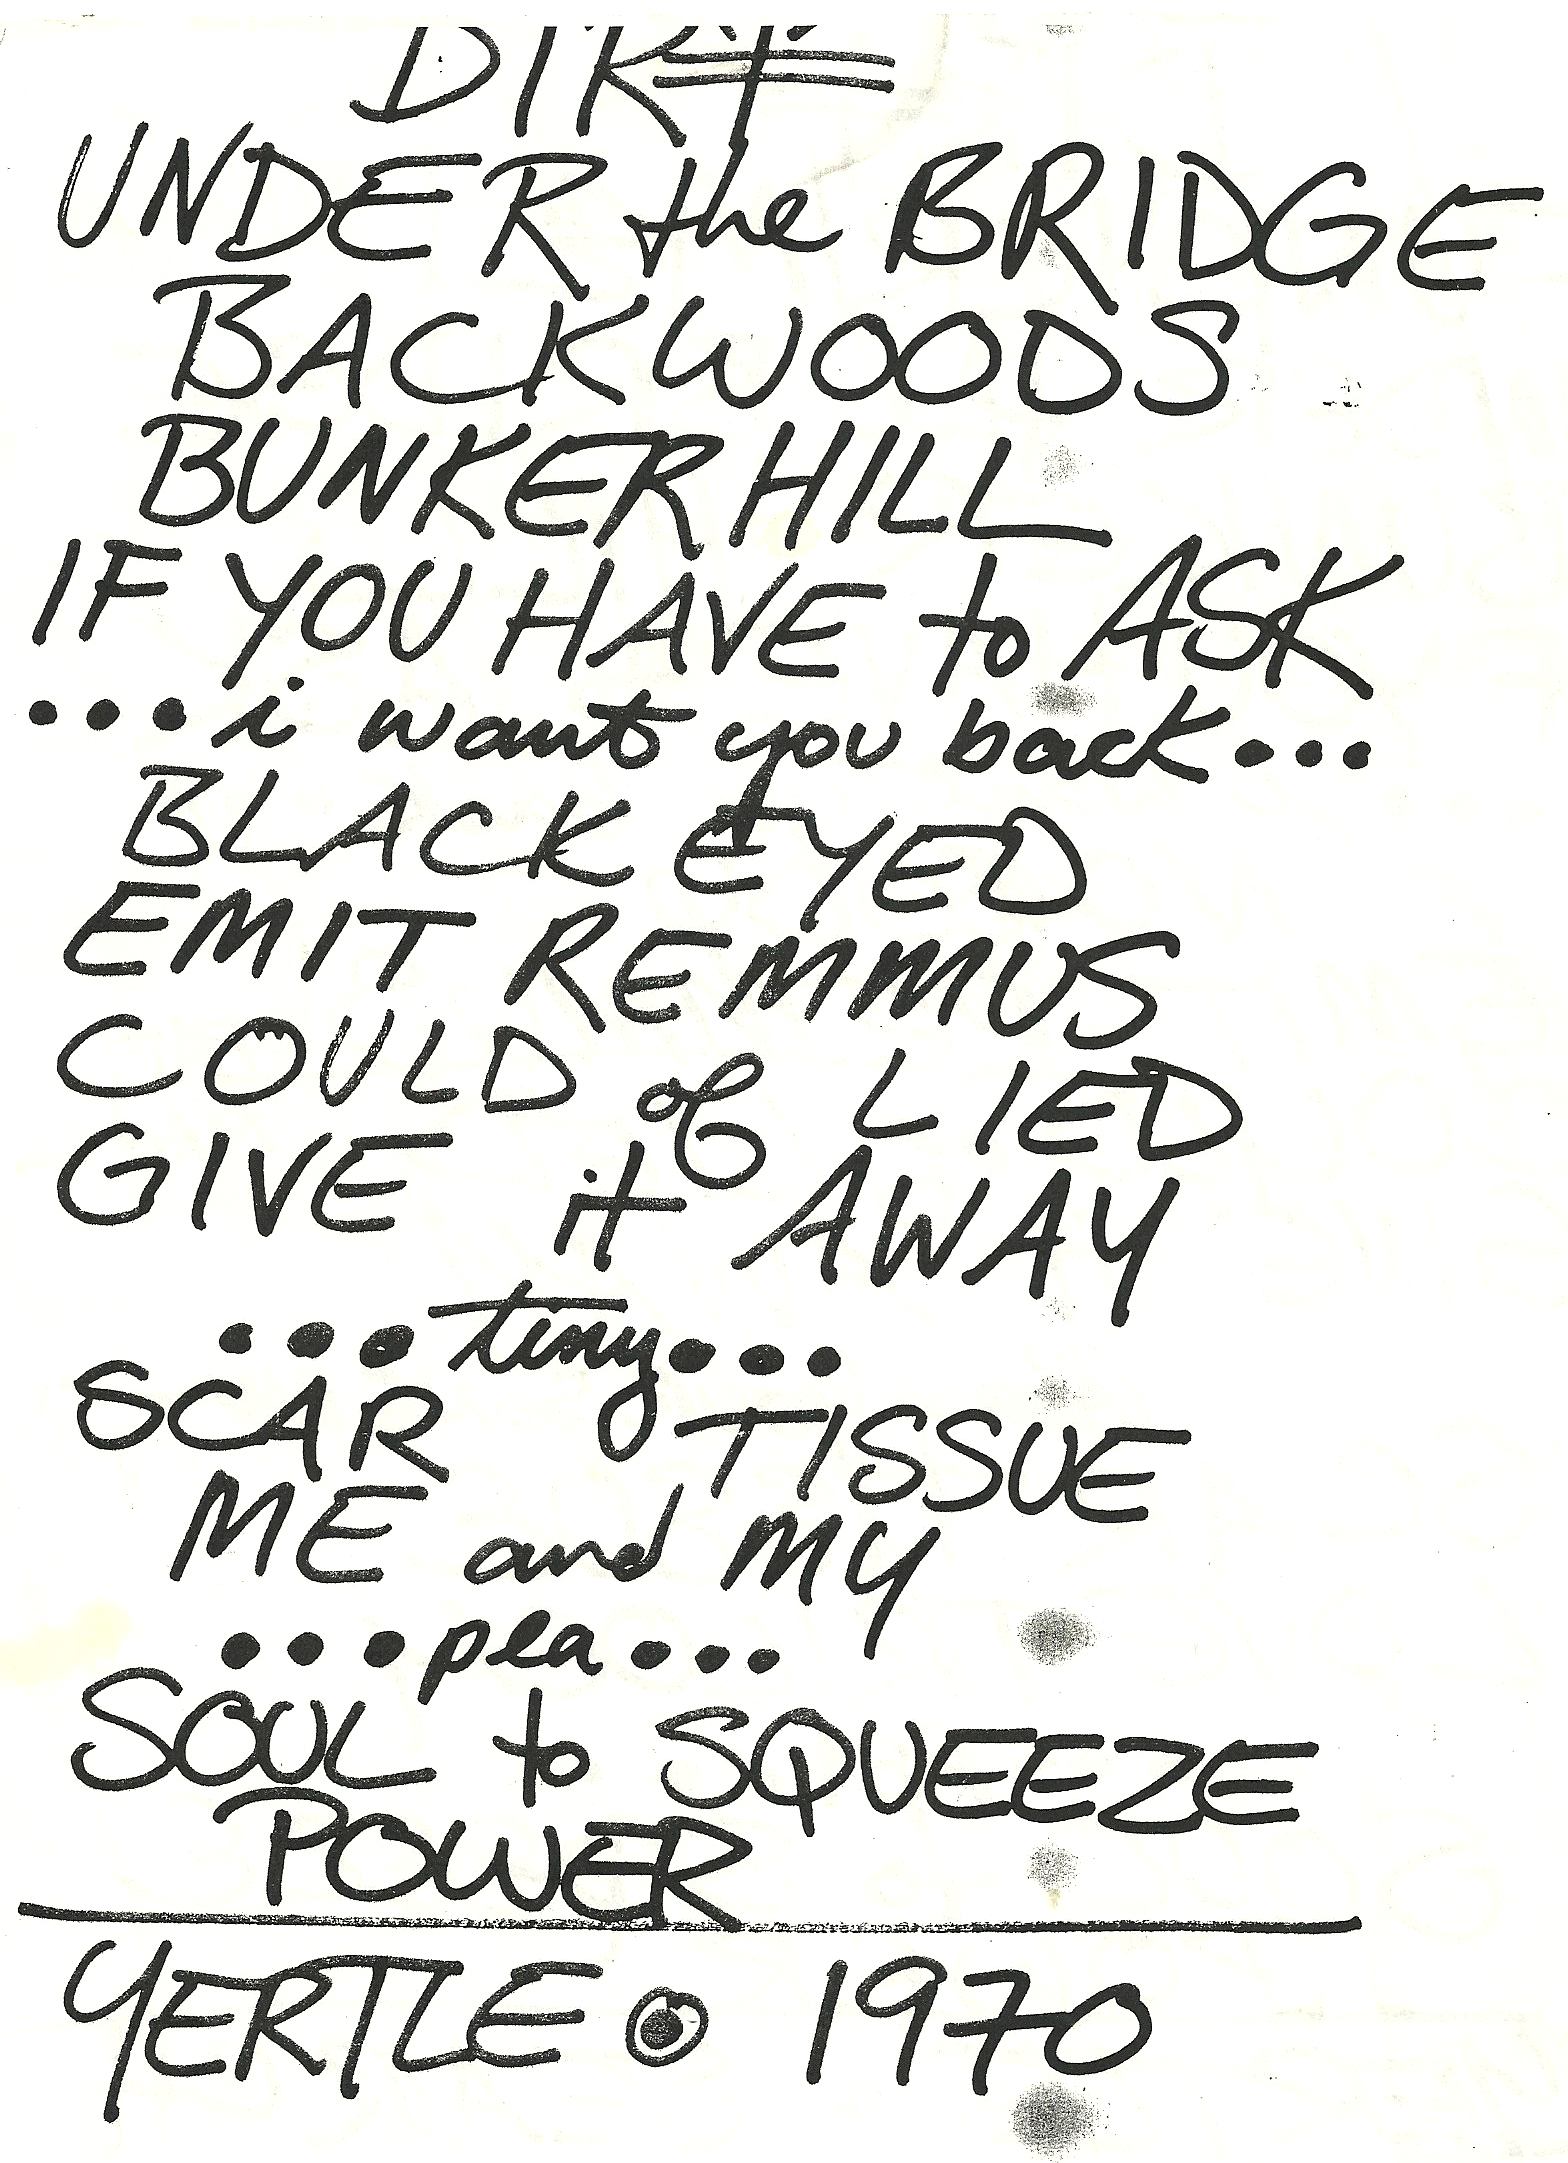 DIRT
UNDER the BRIDGE
BACKWOODS
BUNKER HILL
IF YOU HAVE to ASK
...i want you back...
BLACK EYED
EMIT REMMUS
COULD of LIED
GIVE it AWAY
...tiny...
SCAR TISSUE
ME and MY
...pea...
SOUL to SQUEEZE
POWER
YERTLE 1970